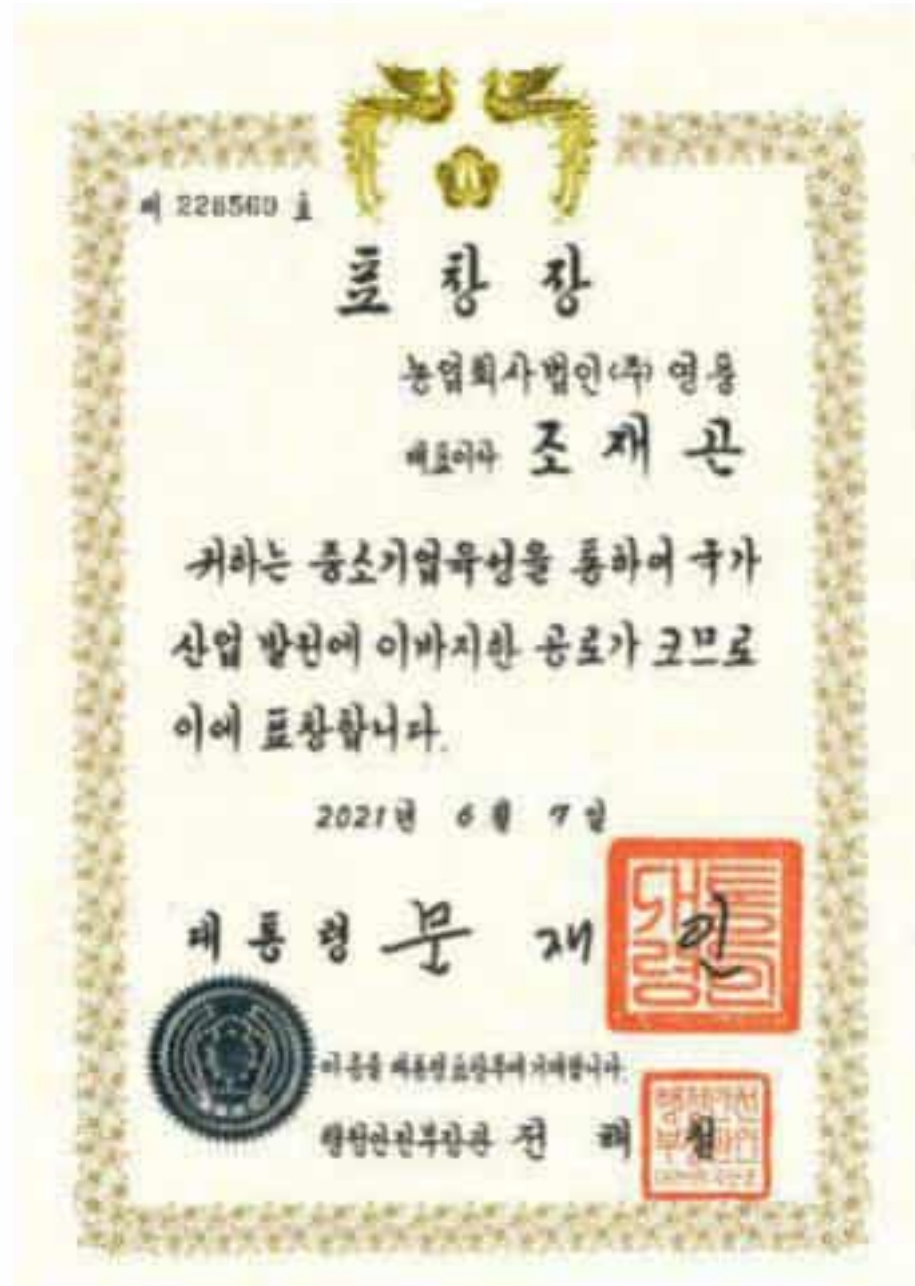 제 226560 호
표 창 장
농업회사법인(주) 영풍
대표이사 조 재 곤
귀하는 중소기업육성을 통하여 국가
산업 발전에 이바지한 공로가 크므로
이에 표창합니다.
2021년 6월 7일
대통령 문 재 인
대통령의
이 증을 대통령표창부에 기재합니다.
행정안전부장관 전 해 철